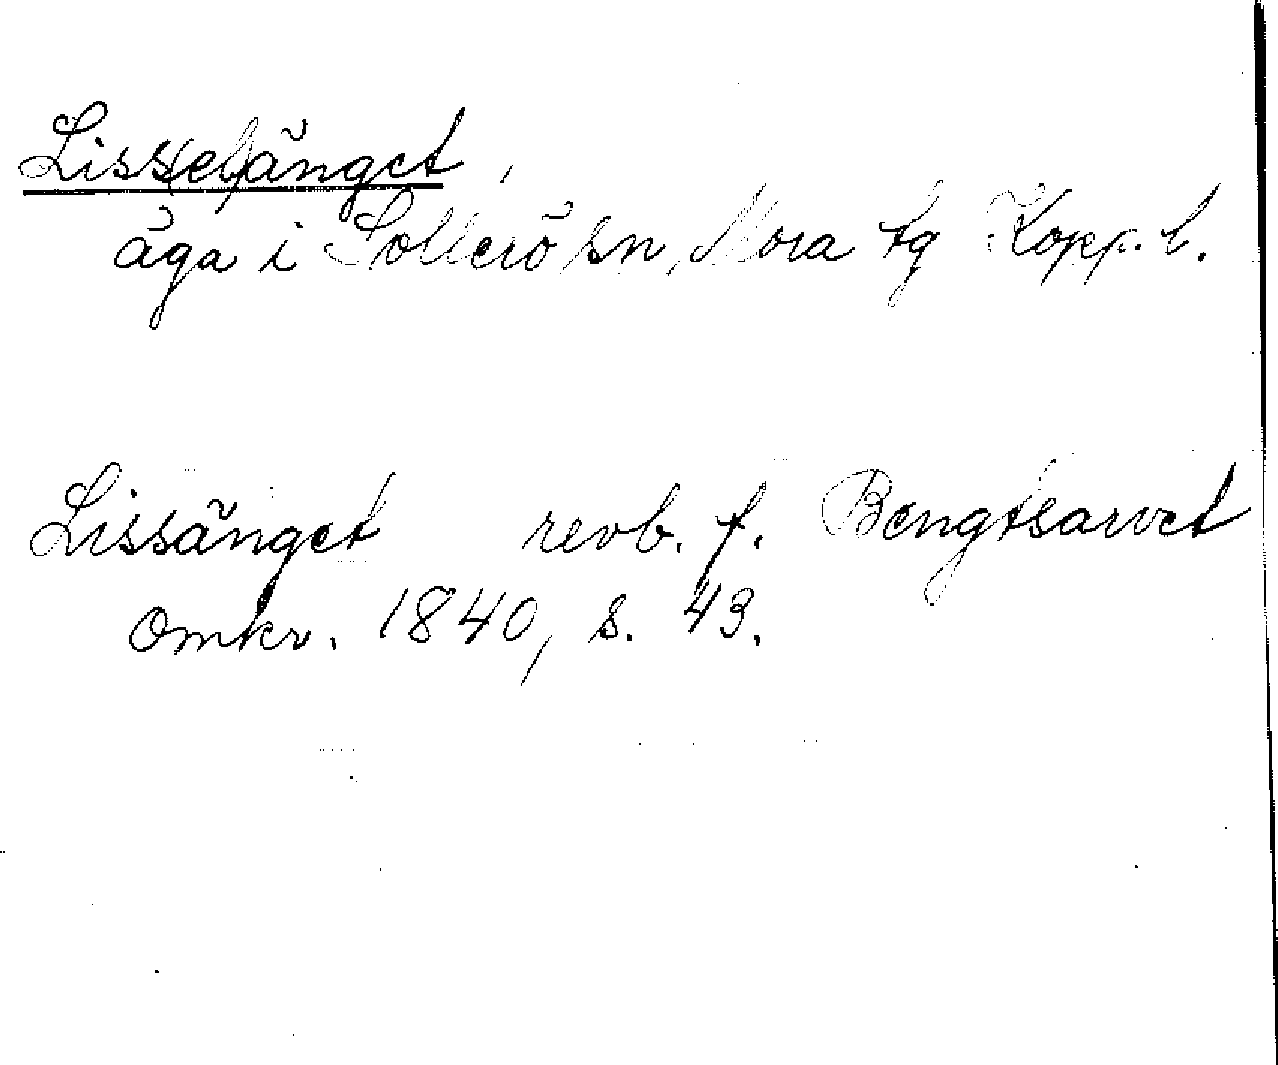 Liss(el)änget,
äga i Sollerö sn, Mora tg Kopp. l.
Lissänget revb. f. Bengtsarvet
omkr. 1840, s. 43.